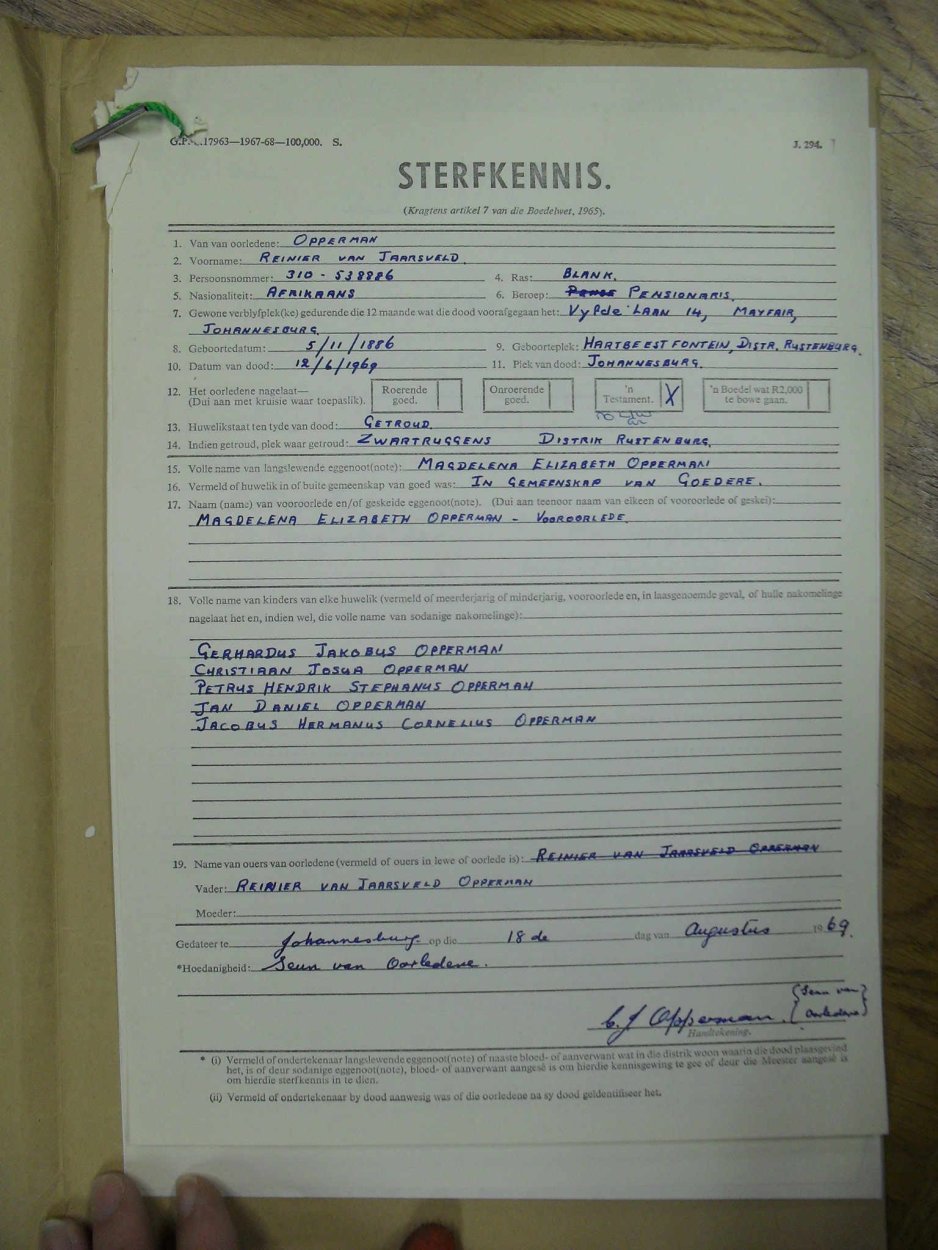 17963—1967-68—100,000. S. J. 294.
STERFKENNIS.
(Kragtens artikel 7 van die Boedelwet, 1965).
1. Van van oorledene: OPPERMAN
2. Voorname: REINIER VAN JAARSVELD.
3. Persoonsnommer: 310 - 538886 4. Ras: BLANK.
5. Nasionaliteit: AFRIKAANS 6. Beroep: PENSIONARIS.
7. Gewone verblyfplek(ke) gedurende die 12 maande wat die dood voorafgegaan het: Vylde LAAN 14, MAYFAIR,
JOHANNESBURG
8. Geboortedatum: 5/11/1886 9. Geboorteplek: HARTBEESTFONTEIN, DISTR. RUSTENBURG.
10. Datum van dood: 12/6/1969 11. Plek van dood: JOHANNESBURG.
12. Het oorledene nagelaat— Roerende Onroerende 'n X 'n Boedel wat R2,000
(Dui aan met kruisie waar toepaslik). goed. goed. Testament. te bowe gaan.
13. Huwelikstaat ten tyde van dood: GETROUD.
14. Indien getroud, plek waar getroud: ZWARTRUGGENS DISTRIK RUSTENBURG.
15. Volle name van langslewende eggenoot(note): MAGDELENA ELIZABETH OPPERMAN
16. Vermeld of huwelik in of buite gemeenskap van goed was: IN GEMEENSKAP VAN GOEDERE.
17. Naam (name) van vooroorlede en/of geskeide eggenoot(note). (Dui aan teenoor naam van elkeen of vooroorlede of geskei):
MAGDELENA ELIZABETH OPPERMAN - VOOROORLEDE.
18. Volle name van kinders van elke huwelik (vermeld of meerderjarig of minderjarig, vooroorlede en, in laasgenoemde geval, of hulle nakomelinge
nagelaat het en, indien wel, die volle name van sodanige nakomelinge):
GERHARDUS JAKOBUS OPPERMAN
CHRISTIAAN JOSUA OPPERMAN
PETRUS HENDRIK STEPHANUS OPPERMAN
JAN DANIEL OPPERMAN
JACOBUS HERMANUS CORNELIUS OPPERMAN
19. Name van ouers van oorledene (vermeld of ouers in lewe of oorlede is): REINIER VAN JAARSVELD OPPERMAN
Vader: REINIER VAN JAARSVELD OPPERMAN
Moeder:
Gedateer te Johannesburg op die 18 de dag van Augustus 1969.
*Hoedanigheid: Seun van Oorledene.
C. J Opperman. {Seun van
Oorledene}
Handtekening.
* (i) Vermeld of ondertekenaar langslewende eggenoot(note) of naaste bloed- of aanverwant wat in die distrik woon waarin die dood plaasgevind
het, is of deur sodanige eggenoot(note), bloed- of aanverwant aangesê is om hierdie kennisgewing te gee of deur die Meester aangesê is
om hierdie sterfkennis in te dien.
(ii) Vermeld of ondertekenaar by dood aanwesig was of die oorledene na sy dood geïdentifiseer het.